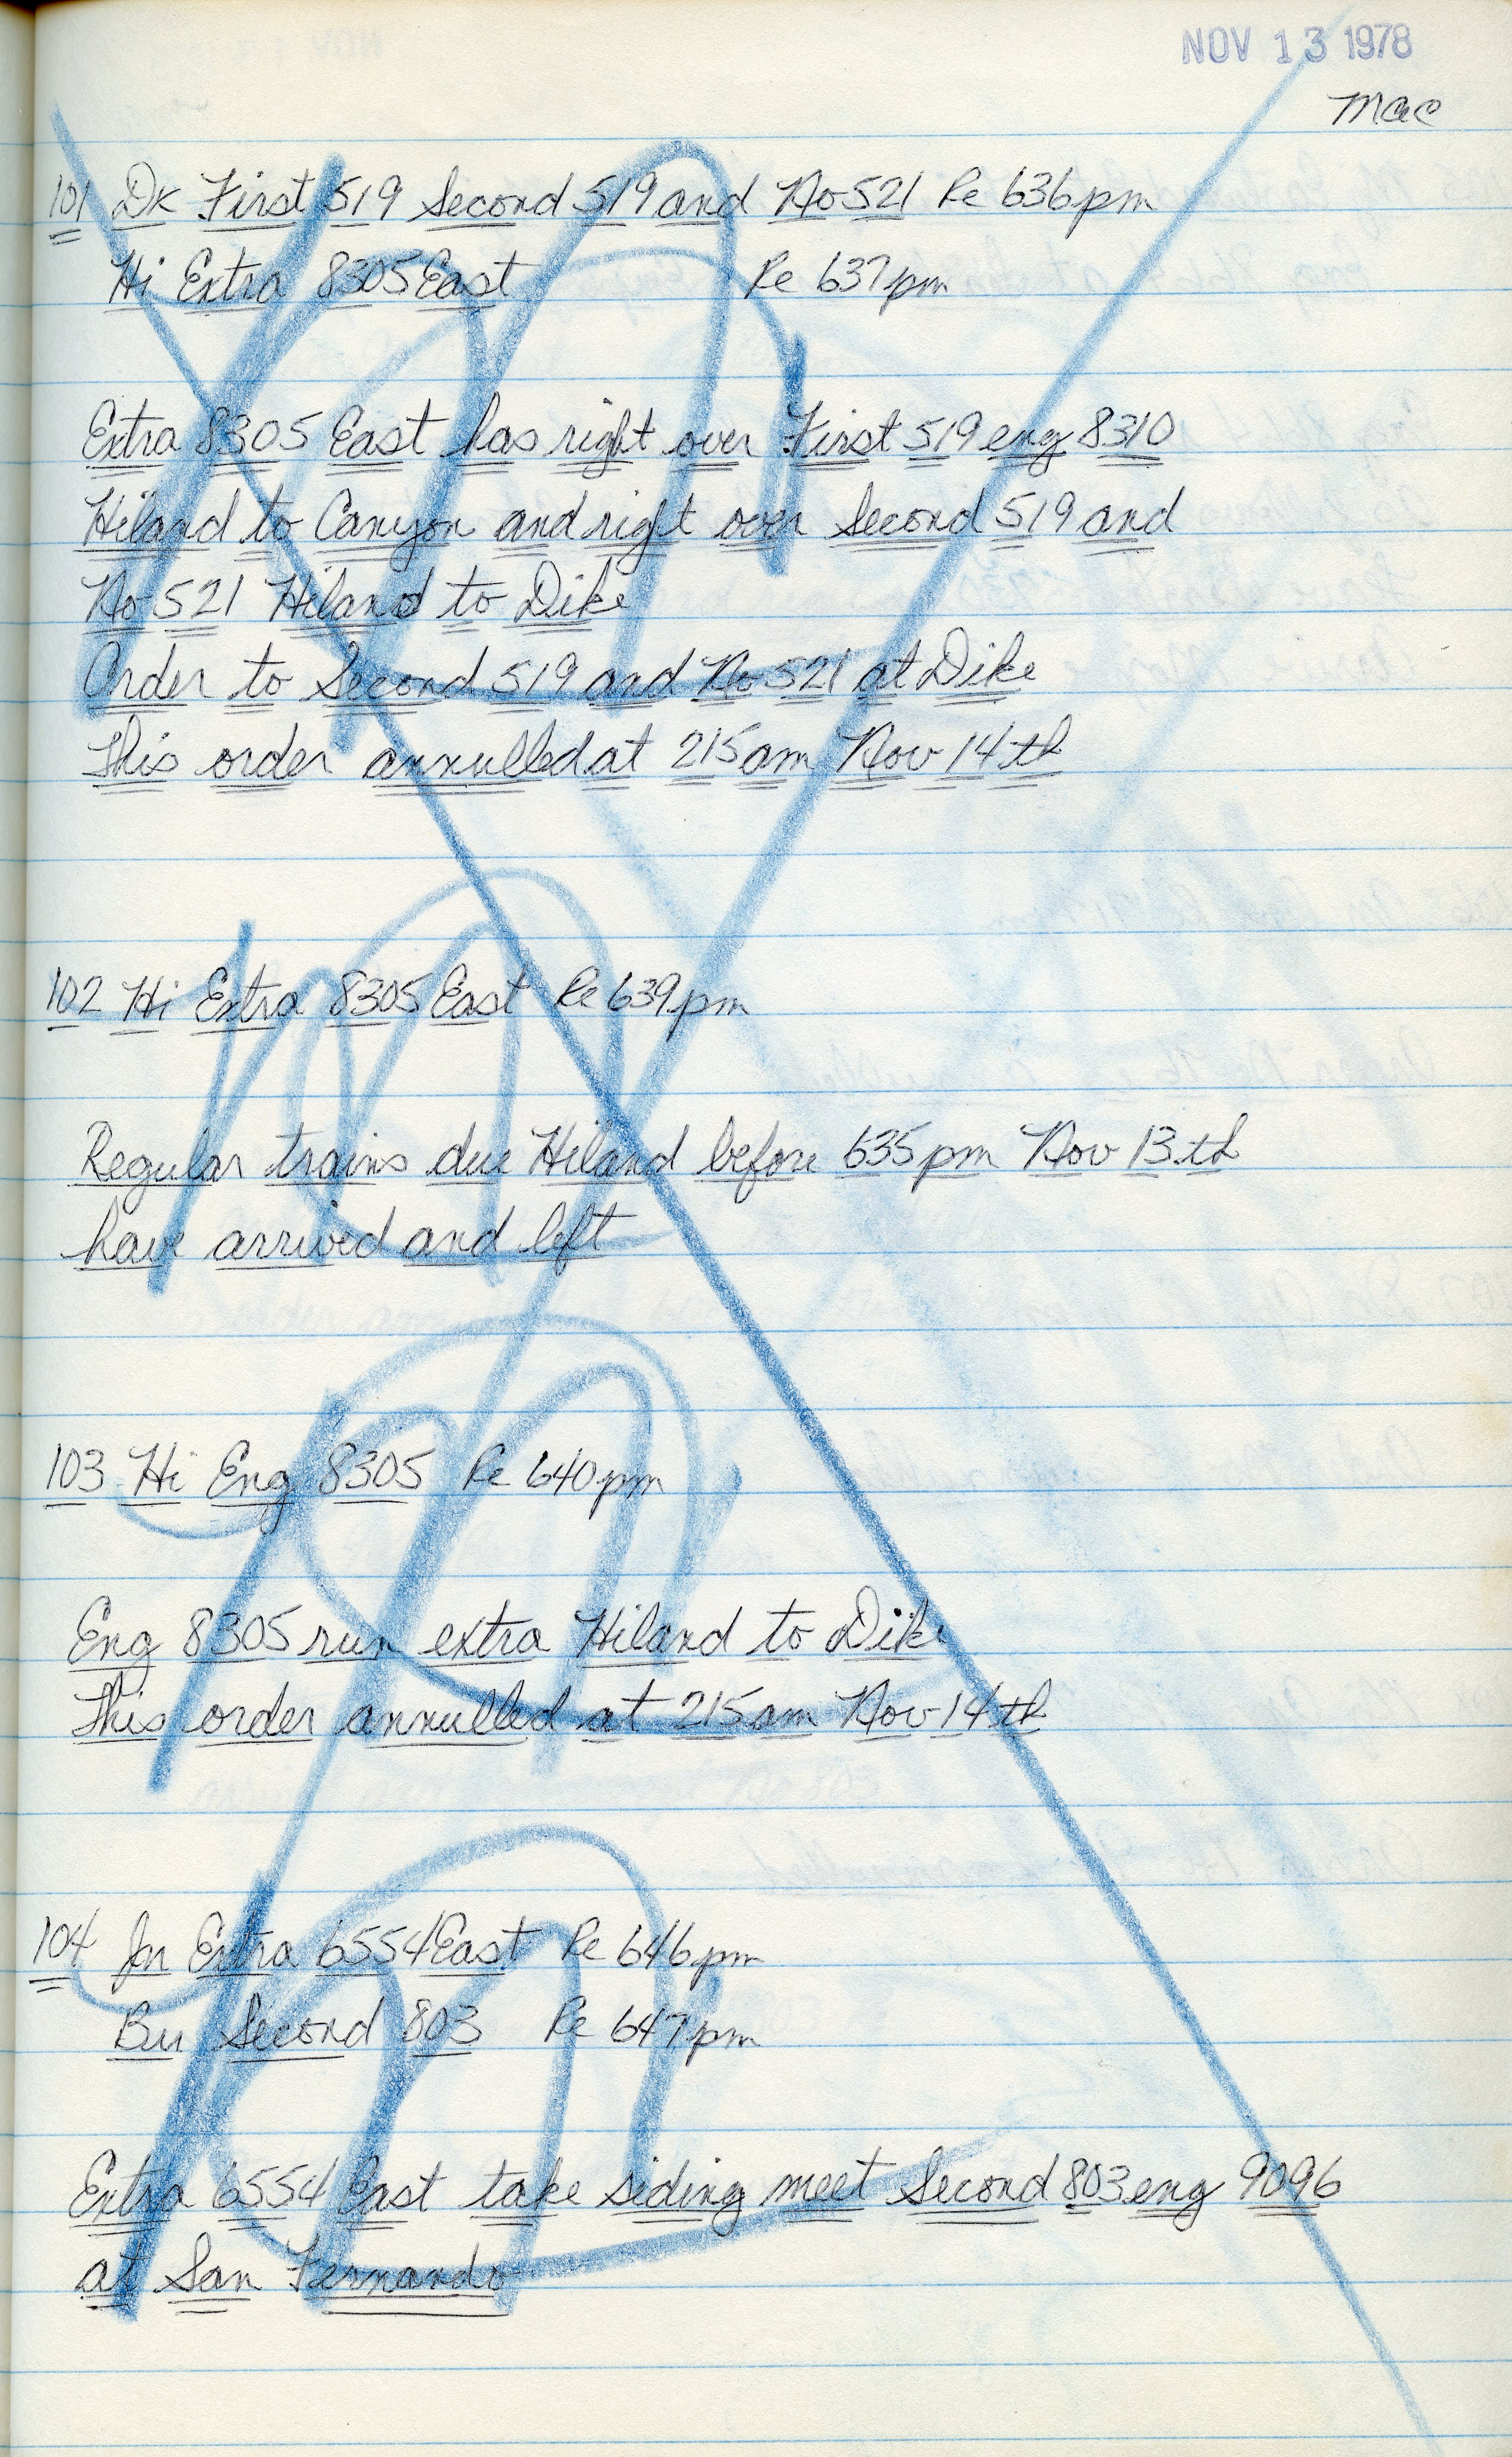 NOV 13 1978
Mac
101 Dk First 519 Second 519 and No 521 Re 636pm
Hi Extra 8305 East Re 637pm
Extra 8305 East has right over First 519 eng 8310
Hiland to Canyon and right over Second 519 and
No 521 Hiland to Dike
Order to Second 519 and No 521 at Dike
This order annulled at 215am Nov 14th
102 Hi Extra 8305 East Re 639pm
Regular trains due Hiland before 635pm Nov 13th
have arrived and left
103 Hi Eng 8305 Re 640pm
Eng 8305 run extra Hiland to Dike
This order annulled at 215am Nov 14th
104 Jn Extra 6554 East Re 646pm
Bu Second 803 Re 647pm
Extra 6554 East take siding meet Second 803 eng 9096
at San Fernando